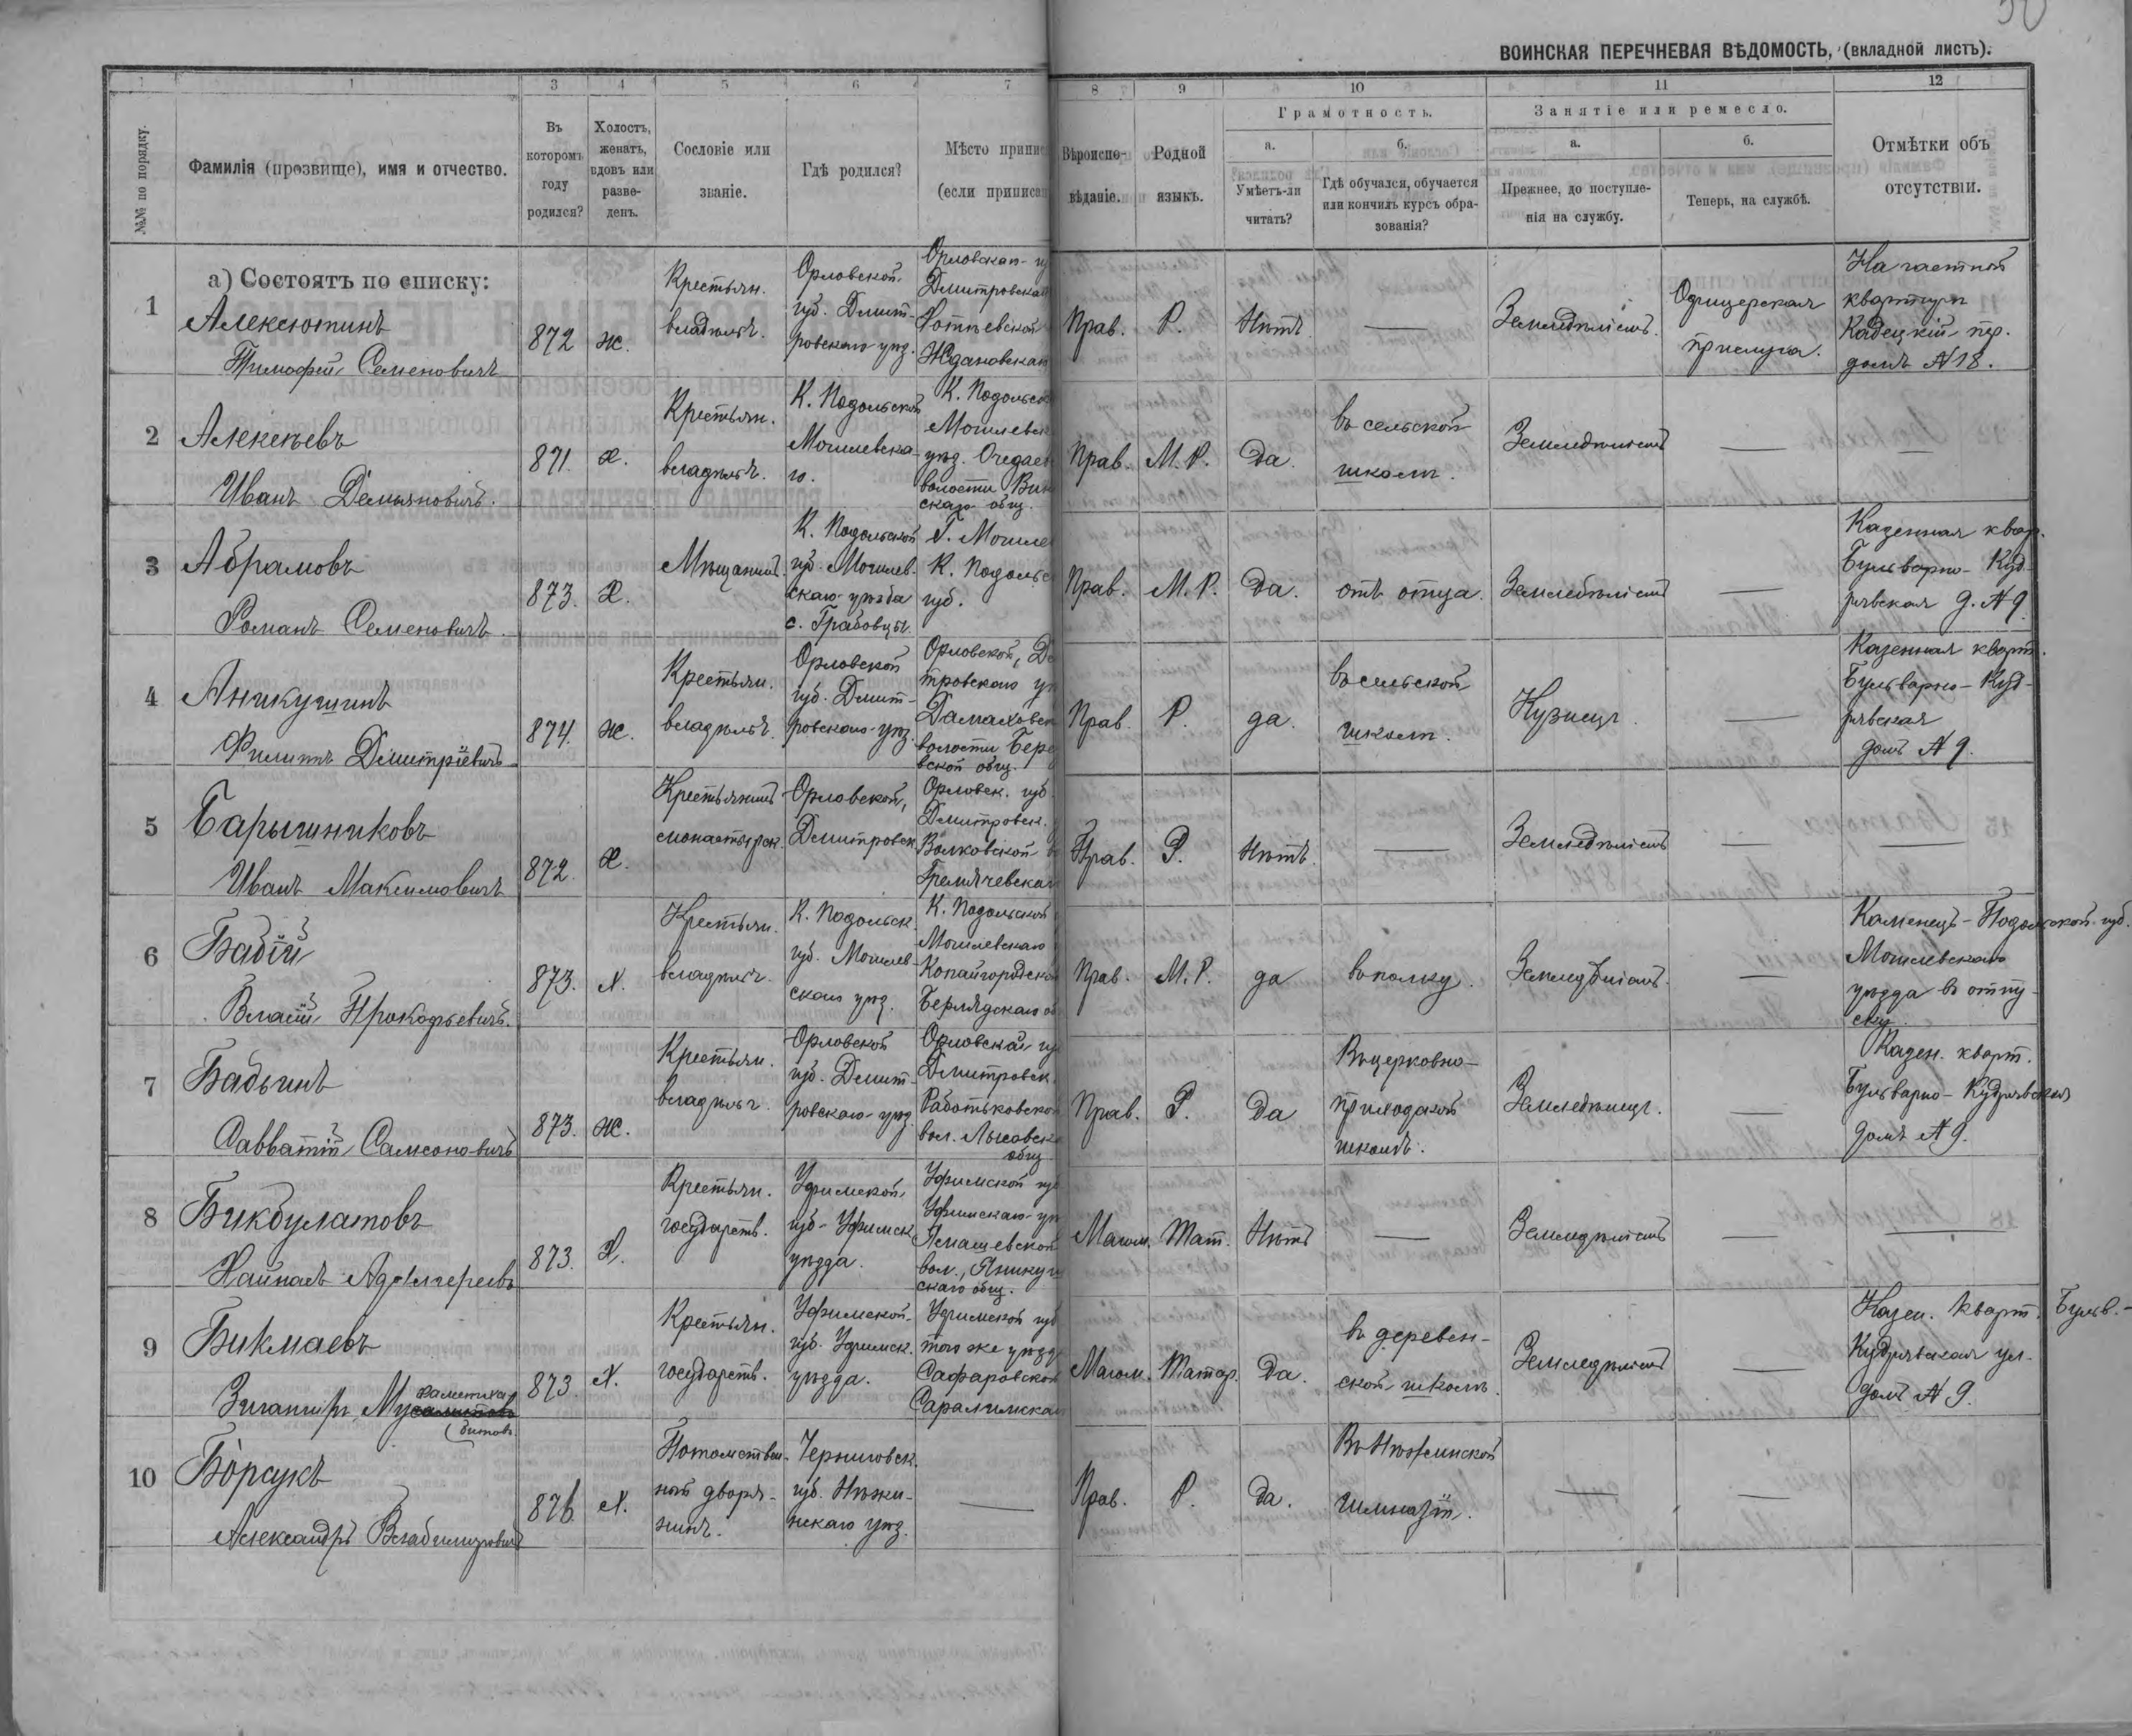 ВОИНСКАЯ ПЕРЕЧНЕВАЯ ВѢДОМОСТЬ, (вкладной листъ).
1 1 3 4 5 6 7 8 9 10 11 12
№№ по порядку.
Фамилія (прозвище), имя и отчество.
Въ которомъ году родился?
Холостъ, женатъ, вдовъ или разве-денъ.
Сословіе или званіе.
Гдѣ родился?
Мѣсто припис
(если приписан
Вѣроиспо-вѣданіе.
Родной языкъ.
Грамотность.
а.
Умѣетъ-ли читать?
б.
Гдѣ обучался, обучается или кончилъ курсъ обра-зованія?
Занятіе или ремесло.
а.
Прежнее, до поступле-нія на службу.
б.
Теперь, на службѣ.
Отмѣтки объ отсутствіи.
а) Состоятъ по списку:
1
Алексютинъ
Тимофей Семеновичъ
872
ж.
Крестьян.
владѣльч.
Орловской
губ. Дмит-
ровскаго уѣз.
Орловская
Дмитровска
Ждановская
Прав.
Р.
Нѣтъ
—
Земледѣліемъ.
Офицерская
прислуга.
На частной
квартирѣ
Кадецкій пер.
домъ №18.
2
Алексѣевъ
Иванъ Демьяновичъ.
871.
х.
Крестьян.
владѣльч.
К. Подольской
Могилевска-
го.
К. Подольск
Могилевск
уѣз.
волости
скаго общ.
Прав.
М. Р.
Да.
въ сельской
школѣ.
Земледѣліемъ
—
—
3
Абрамовъ
Романъ Семеновичъ.
873.
х.
Мѣщанинъ.
К. Подольской
губ. Могилев-
скаго уѣзда
с. Грабовцы.
Г. Могиле
К. Подольс
губ.
Прав.
М. Р.
Да.
отъ отца
Земледѣліемъ
—
Казенная квар.
Бульварно-Куд-
рявская д. №9.
4
Аникушинъ
Филиппъ Дмитріевичъ
874.
ж.
Крестьян.
владѣльч.
Орловской
губ. Дмит-
ровскаго уѣз.
Орловской, Д
тровскаго уѣ
волости Бере
вской общ.
Прав
Р.
да.
въ сельской
школѣ.
Кузнецъ.
—
Казенная кварт.
Бульварно-Куд-
рявская
домъ №9.
5
Барышниковъ
Иванъ Максимовичъ
872.
х.
Крестьянинъ
монастырск.
Орловской,
Дмитровск.
Орловск. губ.
Дмитровск.
Волковской
Гремячевская
Прав.
Р.
Нѣтъ.
—
Земледѣліемъ
—
—
6
Бабій
Власій Прокофьевичъ.
873.
х.
Крестьян.
владѣльч.
К. Подольск.
губ. Могилев-
скаго уѣз.
К. Подольской
Могилевскаго
Копайгородско
Берлядскаго об
Прав.
М. Р.
да
въ полку.
Земледѣліемъ.
—
Каменецъ-Подольской губ.
Могилевскаго
уѣзда въ отпу-
ску.
7
Бадынъ
Савватій Самсоновичъ
873.
ж.
Крестьян.
владѣльч.
Орловской
губ. Дмит-
ровскаго уѣз.
Орловской гу
Дмитровск.
Работьковско
вол. Лысовск
общ
Прав.
Р.
Да
Въ церковно-
приходской
школѣ.
Земледѣлецъ.
—
Казен. кварт.
Бульварно-Кудрявская
домъ №9.
8
Бикбулатовъ
873.
х.
Крестьян.
государств.
Уфимской
губ. Уфимск
уѣзда.
Уфимской гу
Уфимскаго уѣ
вол.,
скаго общ.
Магом.
Тат.
Нѣтъ
—
Земледѣліемъ
—
—
9
Бикмаевъ
873.
х.
Крестьян.
государств.
Уфимской
губ. Уфимск.
уѣзда.
Уфимской губ
того же уѣзд
Сафаровской
Магом.
Татар.
Да.
въ деревен-
ской школѣ.
Земледѣліемъ
—
Казен. кварт. Бульв.-
Кудрявская ул.
домъ №9.
10
Борсукъ
Александръ Владимировичъ
876.
х.
Потомствен-
ный дворя-
нинъ.
Черниговск.
губ. Нѣжи-
нскаго уѣз.
—
Прав.
Р.
Да.
Въ Нѣжинской
гимназіи.
—
—